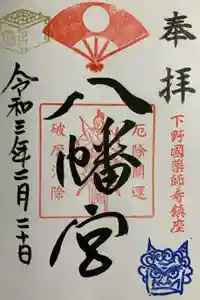 奉拝
下野國薬師寺鎮座
八幡宮
厄除開運
破魔消除
令和三年二月二十日